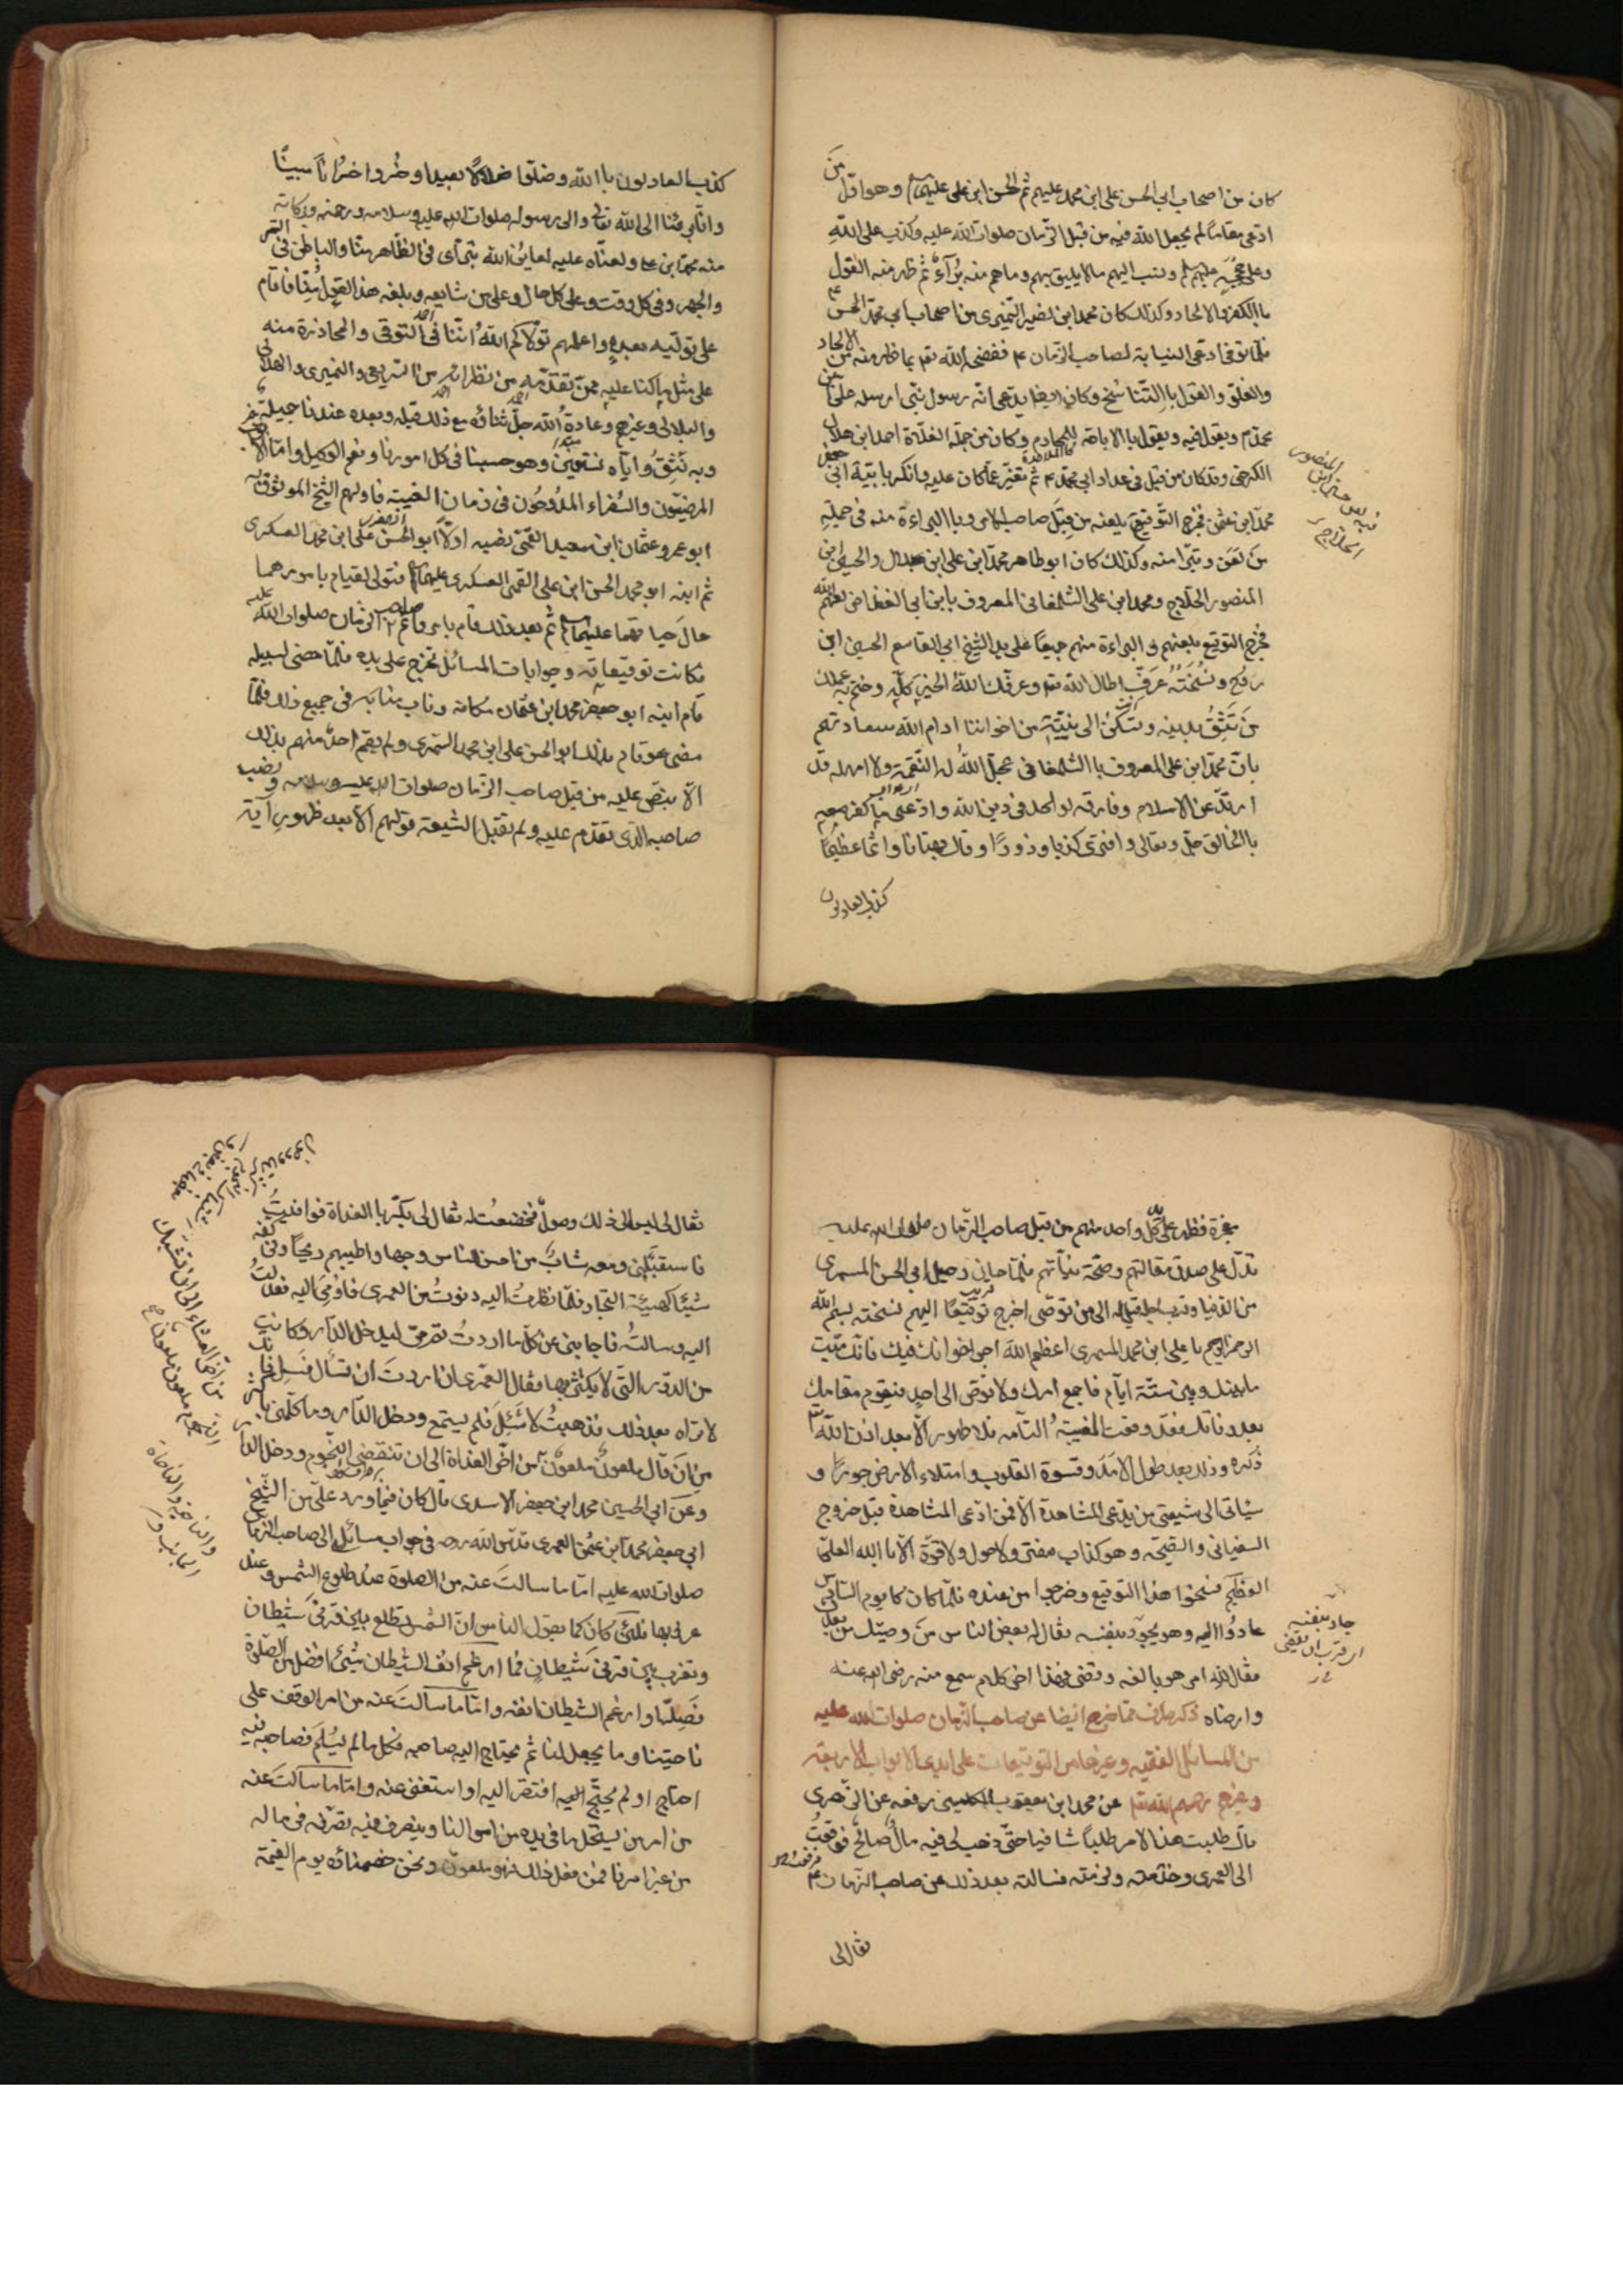 كان من اصحاب ابي الحسن على ابن محمد عليهم ثم الحسن ابن على عليهما وهو اوّل مَن
ادعى مقاماً لم يجعل الله فيه من قبل الزمان صلوات الله عليه وكذب على الله
وعلى حججه عليهم ونسب اليهم مالا يليق بهم وما هم منه بُرآءٌ ثم ظهر منه القول
باالكفر والالحاد وكذلك كان محمد ابن نصير النّميرى من اصحاب ابي محمد الحسن ع
فلما توفى ادعى النيابة لصاحب الزمان ع ففضحه الله تعه بما ظهر منه من الالحاد
والغلوّ والقول باالتناسُخ وكان ايضا يدّعى انّه رسول نبىّ ارسله على ابن
محمد م ويقول فيه ويقول باالاباحة للمحارم وكان من جملة الغلاة احمد ابن هلال
الكرخى وقد كان من قبل فى عداد ابي محمد ع ثم تغيّر عمّا كان عليه وانكر بابيّة ابى جعفر
محمد ابن عثمن فخرج التّوقيع بلعنه من قِبَل صاحب الامر وباالبراءة منه فى جملةِ
من لعَن وتبرّا منه وكذلك كان ابو طاهر محمد ابن على ابن بلال والحسين ابن
المنصور الحلّاج ومحمد ابن على الشلمغانى المعروف بابن ابي العزاقر لعنهم الله
فخرج التوقيع بلعنهم والبراءة منهم جميعًا على يد الشيخ ابي القاسم الحسين ابن
روُح ونُسْخَتُهُ عَرَفّ اطال الله تعه وعرفك اللهُ الخير كلّه وختم به عملك
مَن تَثِقُ بدينه وتسكُنُ الى نيّته من اخواننا ادام الله سعادتهم
بانّ محمد ابن على المعروف باالشلمغانى عجّل اللهُ له النّقمة ولا امهله قد
ارتدّ عن الاسلام وفارقه والحد فى دين الله وادّعى ما كفر معه
باالخالق جلّ وتعالى وافترى كذبا وزورًا وقال بهتانا واثما عظيمًا
كذب العادلون
كذب العادلون باالله وضلّوا ضلالًا بعيدا وخُروا خسرانًا مبينًا
وانّا برئنا الى الله تعالى والى رسوله صلوات الله عليه وسلامه ورحمته وبركاته
منه محمد ابن على ولعنّاه عليه لعاين الله تترى فى الظّاهر منّا والباطن فى السّر
والجهر وفى كل وقت وعلى كل حال وعلى من شايعه وبلغه هذا القول مِنّا فاقام
على توليه بعده واعلمهم تولاكم اللهُ انّنا فى التوقى والمحاذرة منه
على مثل ما كنا عليه ممن تقدّمه من نظرائه من الشريعى والنميرى والهلالى
والبلالى وغيرهم وعادة الله جلّ ثناؤه مع ذلك قبله وبعده عندنا جميلة
وبه نَثِقُ وايّاه نستعين وهو حسبنا فى كل امورنا ونعم الوكيل وامّا الابواب
المرضيّون والسُفراء الممدُوحُون فى زمان الغيبة فاولهم الشيخ الموثوق به
ابو عمرو عثمان ابن سعيد العَمْرى نصبه اولًا ابو الحسن على ابن محمد العسكرى
ثم ابنه ابو محمد الحسن ابن على العسكرى عليهما فتولى القيام بامورهما
حالَ حياتهما عليهما ثم بعد ذلك قام بامر صاحب الزمان صلوات الله عليه
فكانت توقيعاته وجوابات المسائل تخرج على يده فلمّا مضى لسبيله
قام ابنه ابو جعفر محمد ابن عثمان مكانه وناب منابه فى جميع ذلك فلمّا
مضى هو قام بذلك ابو الحسن على ابن محمد السّمرى ولم يقم احدٌ منهم بذلك
الّا بنصّ عليه من قبل صاحب الزمان صلوات الله عليه وسلامه ونصب
صاحبه الذى تقدّم عليه ولم تقبل الشيعة قولهم الّا بعد ظهور آية
معجزة فظهر على كلّ واحد منهم من قبل صاحب الزمان صلوات الله عليه
تدّل على صدق مقالتهم وصحّة نيّاتهم فلمّا حان رحيل ابي الحسن السمرى
من الدّنيا وقرب اجله قيل له الى من توصى اخرج توقيعًا اليهم نسخته بسم الله
الرحمن الرحيم يا على ابن محمد السمرى اعظم الله اجر اخوانك فيك فانّك ميّت
ما بينك وبين ستّة ايّام فاجمع امرك ولا توص الى احد فيقوم مقامك
بعد وفاتك فقد وقعت الغيبةُ التامّه فلا ظهور الّا بعد اذن الله تعا
ذكره وذلك بعد طول الامَدِ وقسوة القلوب وامتلاء الارض جورًا و
سيأتى الى شيعتى من يدّعى المشاهدة الا فمن ادّعى المشاهدة قبل خروج
السفيانى والصّيحة وهو كذّاب مفتر ولا حول ولا قوّة الّا باالله العلىّ
العظيم فنسخوا هذا التوقيع وخرجوا من عنده فلمّا كان كا يوم السّادس
عادُوا اليه وهو يجود بنفسه فقال له بعض الناس مَن وصيّك من بعدك
فقال لله امر هو بالغه وقضى فهذا اخر كلام سمع منه رضى الله عنه
وارضاه ذكر طرف ممّا خرج ايضا عن صاحب الزمان صلوات الله عليه
من المسائل الفقهيه وغيرها من التوقيعات على ايدى الابواب الاربعة
وغيرهم رحمهم الله تعا عن محمد ابن يعقوب الكلينى رفعه عن الزّهرى
قال طلبت هذا الامر طلبًا شافيا حتى ذهب لى فيه مالٌ صالحٌ فوقعتُ
الى العمرى وخدمته ولزمته فسالته بعد ذلك عن صاحب الزمان ع
فقال لى
فقال لى ليس الى ذلك وصولٌ فخضعتُ له فقال لى بكّر باالغداة فوافيتُ
فاستقبَلنى ومعه شابٌ من احسن الناس وجها واطيبهم ريحًا وفى كمّه
شيئًا كهيئة التجار فلمّا نظرتُ اليه دنوتُ من العمرى فاومى اليه فعدلتُ
اليه وسالتُه فاجابنى عن كلّ ما اردتُ ثم مرّ ليدخل الدّار وكانت
من الدّور التى لا يكترث بها فقال العَمرى ان اردتَ ان تسأل فسَل فانّك
لا تراه بعد ذلك فذهبتُ لاسئل فلم يستمع ودخل الدّار وما كلّمنى باكثر
من انَ قال ملعونٌ ملعونٌ من اخّر الغداة الى ان تنقضى النّجوم ودخل الدار
وعَن ابي الحسين محمد ابن جعفر الاسدى قال كان فيما ورد علىّ من الشيخ
ابي جعفر محمد ابن عثمن العمرى قدّس الله روحه فى جواب مسائل الى صاحب الزمان
صلوات الله عليه امّا ما سالتَ عنه من الصلوة عند طلوع الشمس وعند
غروبها فلئن كان كما يقول الناس انّ الشمس تطلع بين قرنى شيطان
وتغرب بين قرنى شيطانٍ فما ارغم انف الشيطان شيئٌ افضل من الصّلوة
فَصَلِّها وارغم الشيطان انفه وامّا ما سالتَ عنه من امر الوقف على
ناحيتنا وما يجعل لنا ثم يحتاج اليه صاحبه فكل ما لم يُسلّم فصاحبه فيه
احتاج او لم يحتَج اليه افتقر اليه او استغنى عنه وامّا ما سالتَ عنه
من امر من يستحلّ ما فى يده من اموالنا ويتصرف فيه تصرّفه فى ماله
من غير امرنا فمن فعل ذلك فهو ملعونٌ ونحن خصمائه يوم القيمة